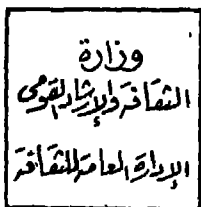 وزارة
الثقافة والإرشاد القومى
الإدارة العامة للثقافة